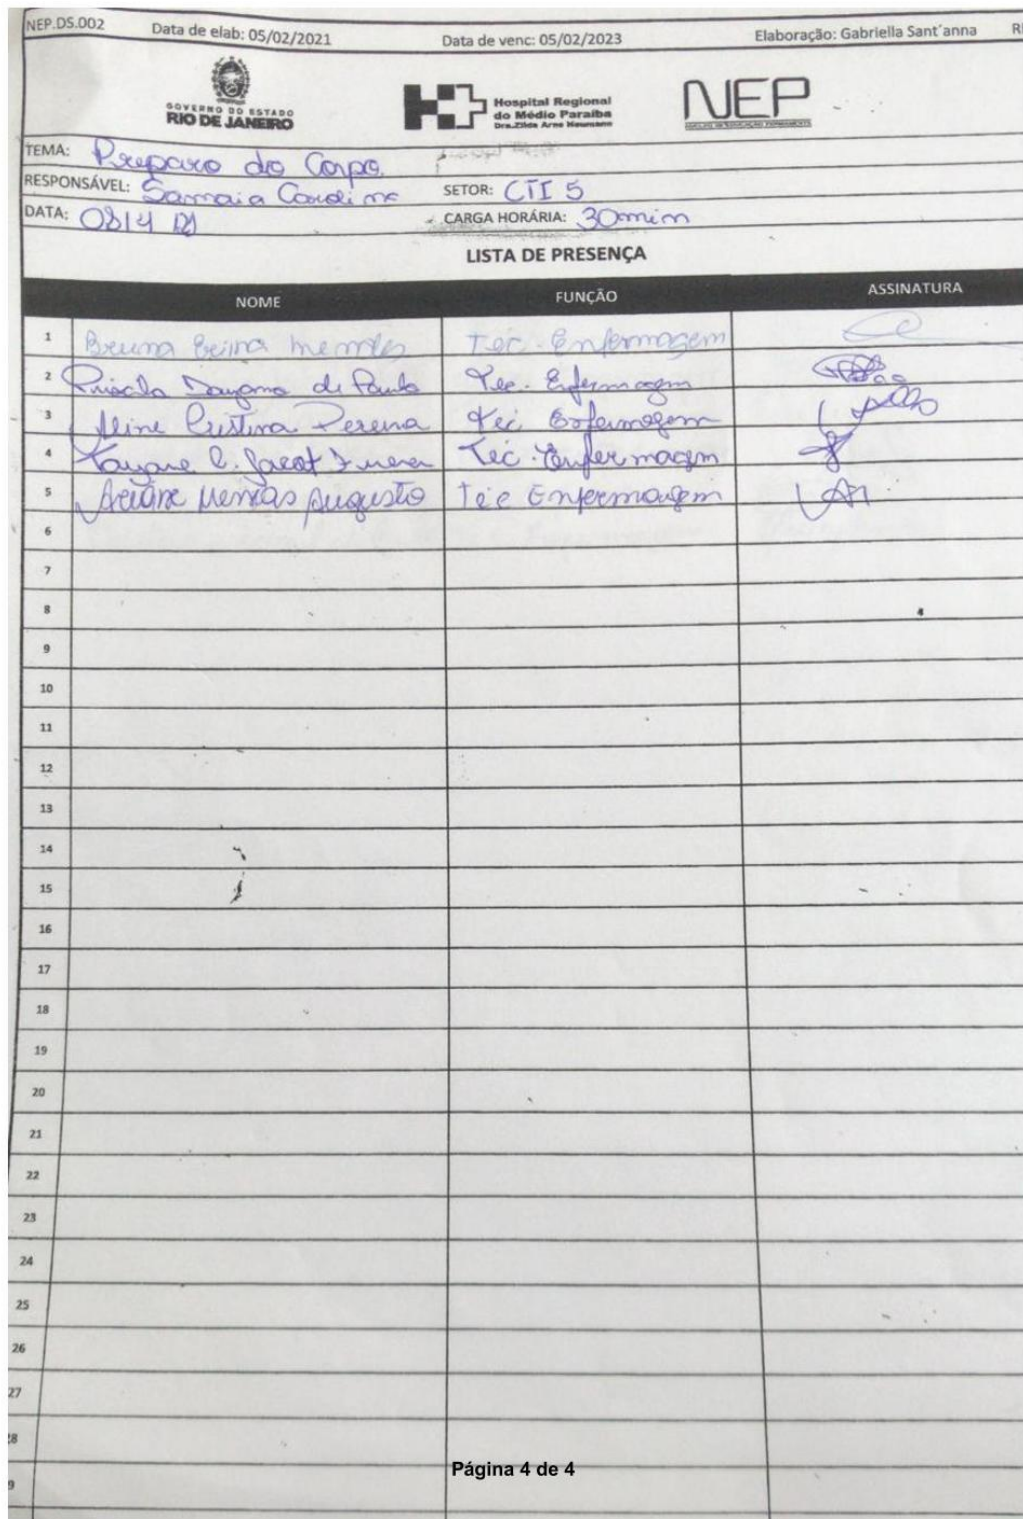 NEP.DS.002 Data de elab: 05/02/2021 Data de venc: 05/02/2023 Elaboração: Gabriella Sant'anna
GOVERNO DO ESTADO
RIO DE JANEIRO
Hospital Regional
do Médio Paraíba
Dra.Zilda Arns Neumann
NEP
NÚCLEO DE EDUCAÇÃO PERMANENTE
TEMA: Preparo do Corpo
RESPONSÁVEL: Samaia Caroline SETOR: CTI 5
DATA: CARGA HORÁRIA: 30min
LISTA DE PRESENÇA
NOME FUNÇÃO ASSINATURA
1 Bruna Mendes Tec. Enfermagem
2 Priscila Dayana de Paula Tec. Enfermagem
3 Aline Cristina Pereira Tec Enfermagem
4 Tayane C. Tec. Enfermagem
5 Augusto Tec Enfermagem
6
7
8
9
10
11
12
13
14
15
16
17
18
19
20
21
22
23
24
25
26
27
Página 4 de 4